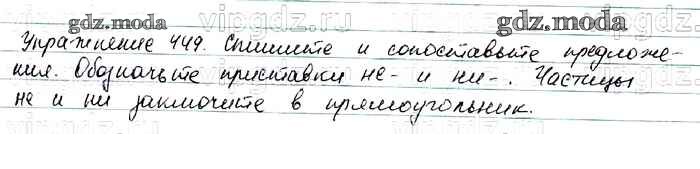 gdz.moda gdz.moda
vipgdz.ru vipgdz.ru
Упражнение 449. Спишите и сопоставьте предложе-
ния. Обозначьте приставки не- и ни-. Частицы
не и ни заключите в прямоугольник.
vipgdz.ru